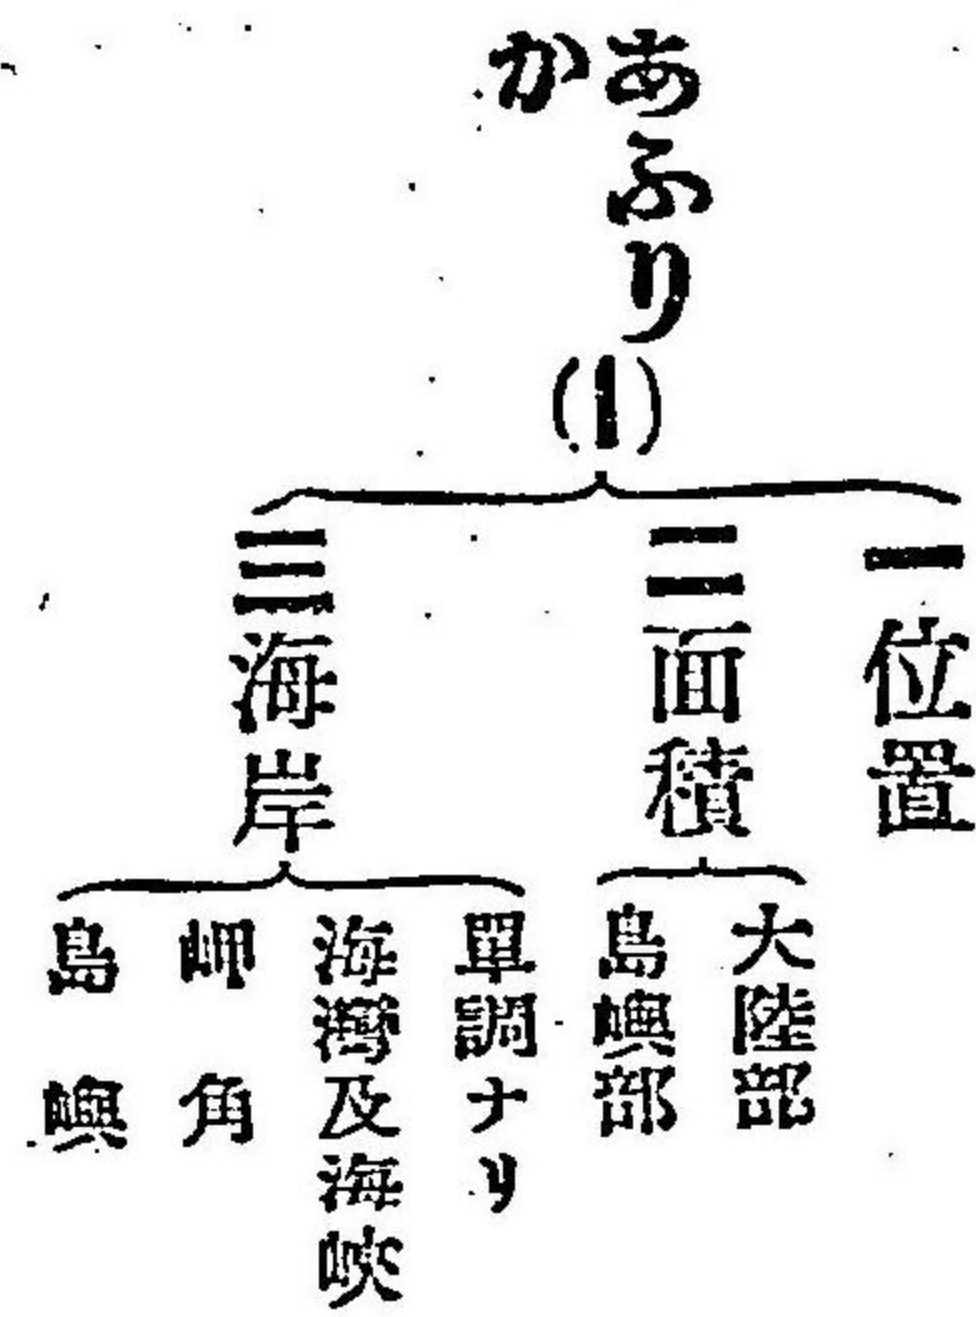 あふりか(一)
一位置
二面積
大陸部
島嶼部
三海岸
單調ナリ
海灣及海峽
岬角
島嶼